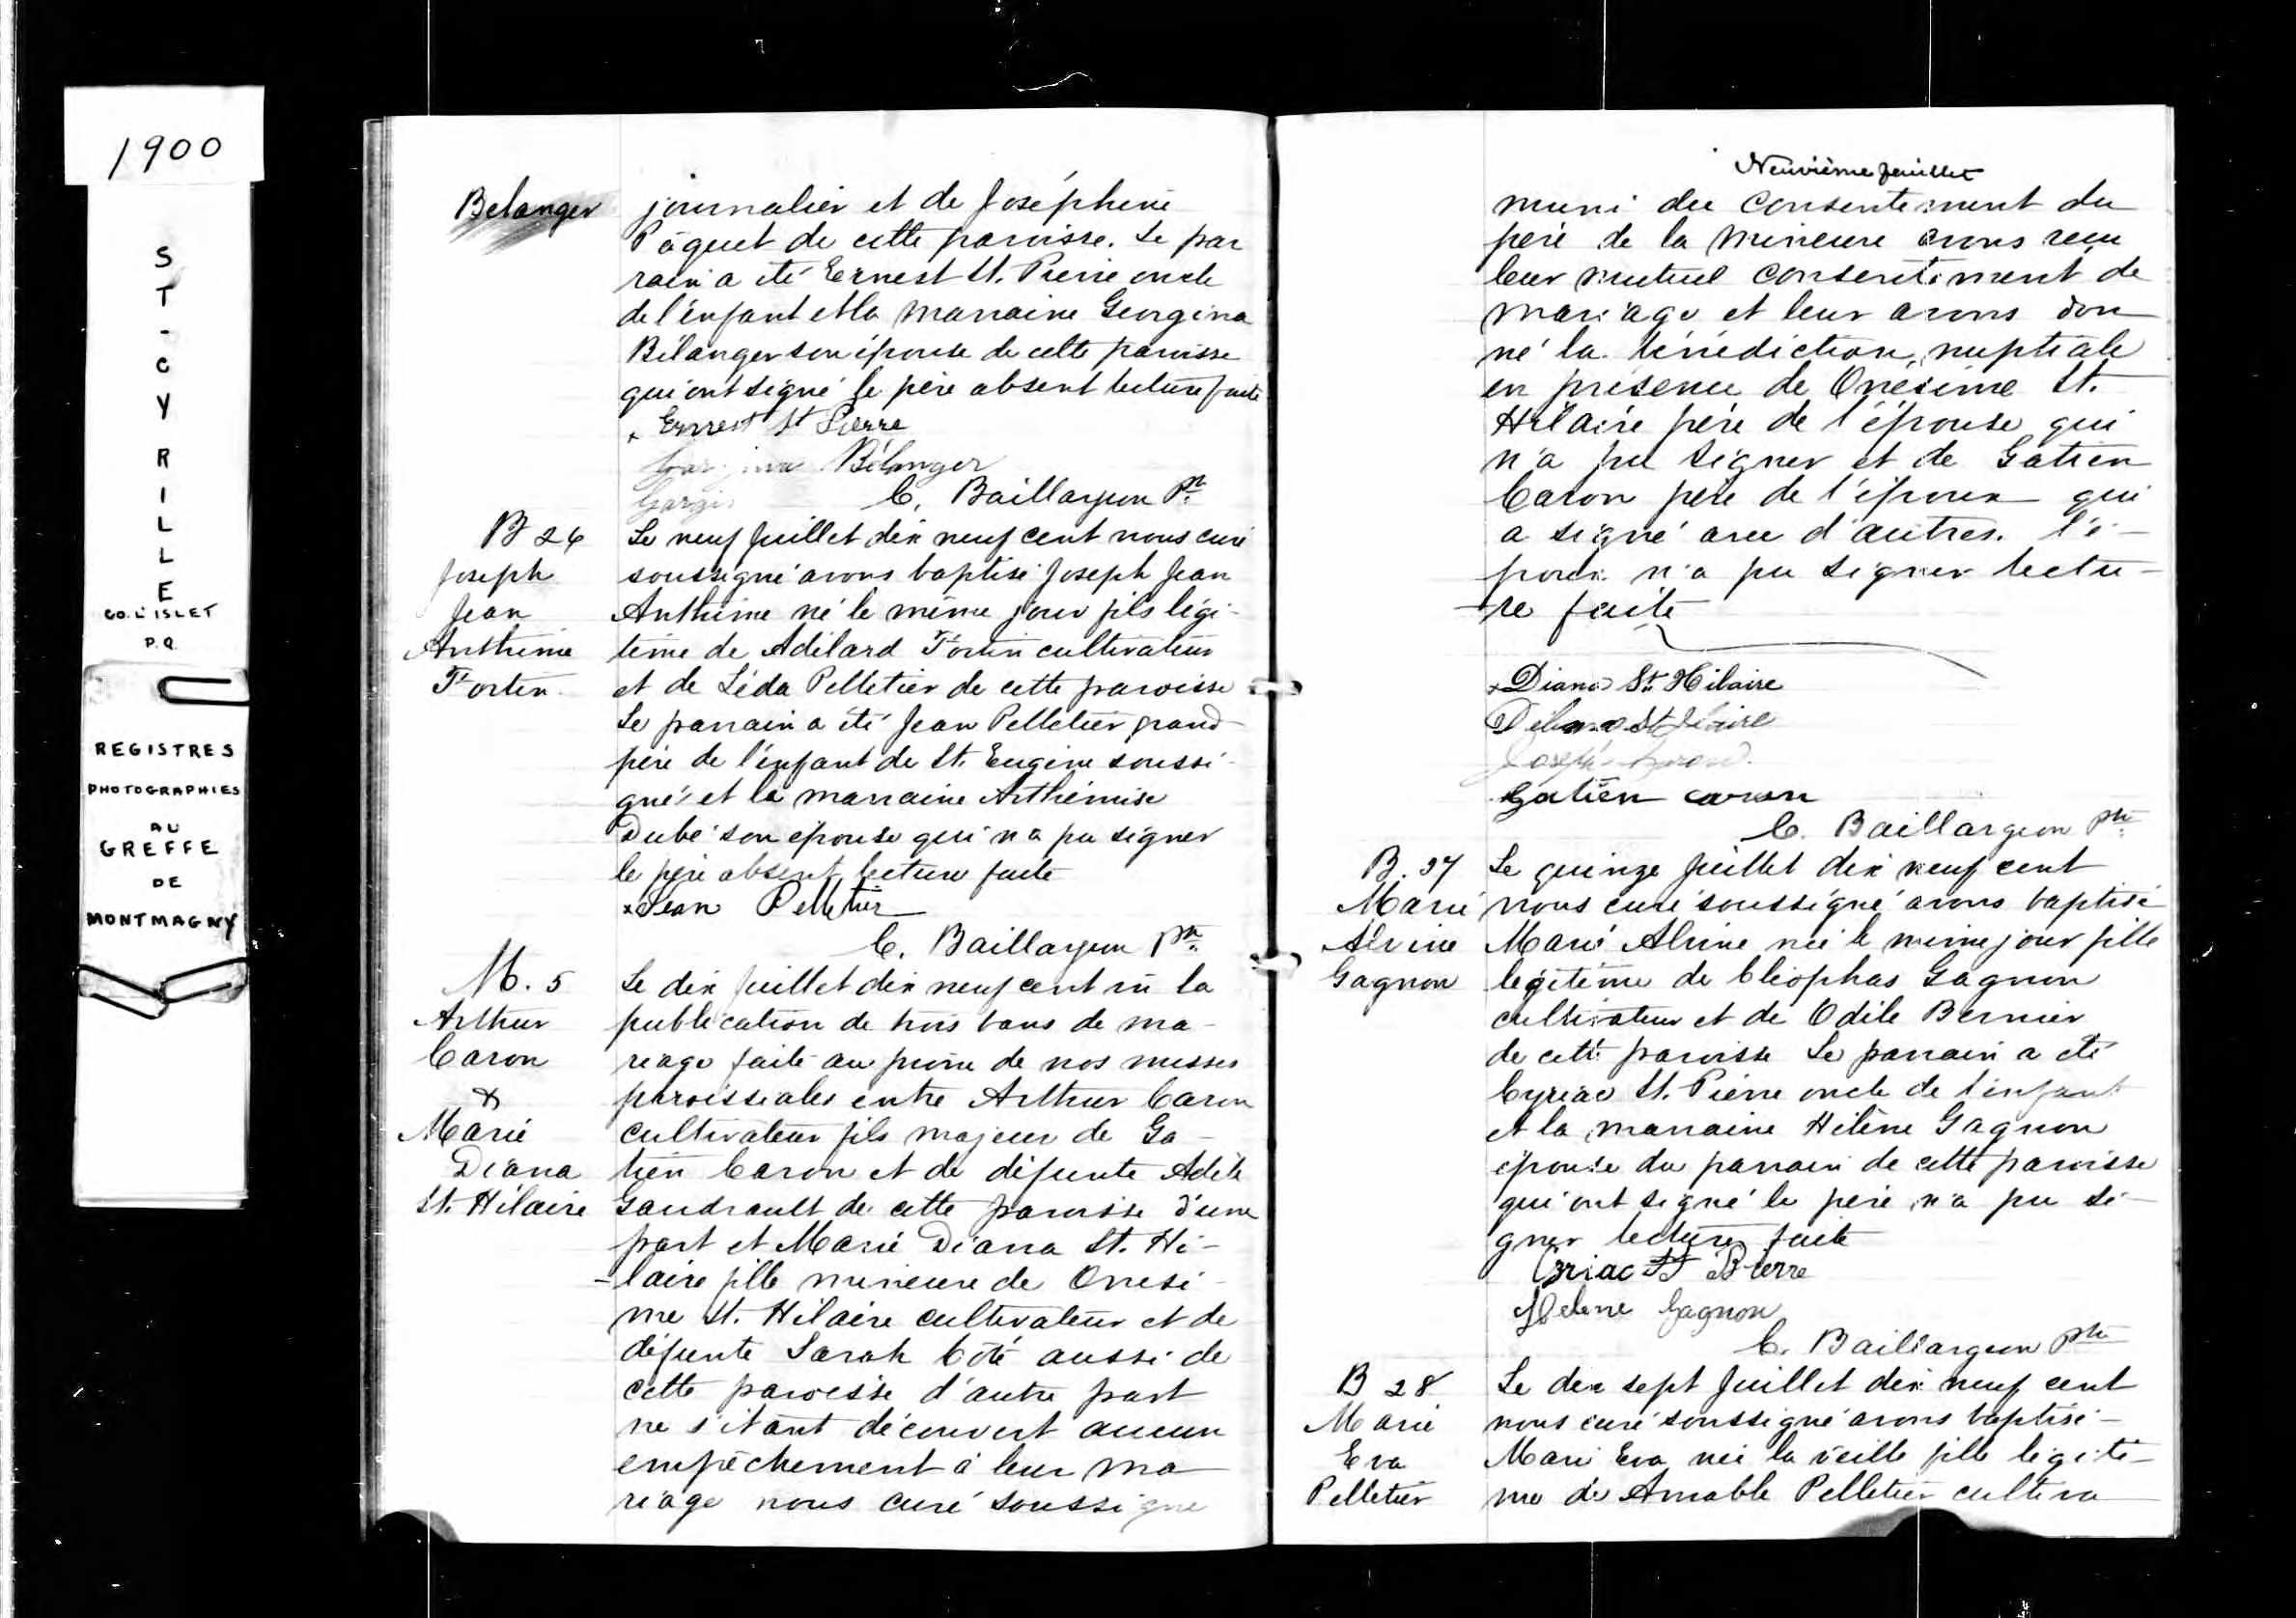 1900
ST-CYRILLE
CO. L'ISLET
P.Q.
REGISTRES
PHOTOGRAPHIES
AU
GREFFE
DE
MONTMAGNY
Belanger
journalier et de Joséphine
Pâquet de cette paroisse. Le par
rain a été Ernest St. Pierre oncle
de l'enfant et la marraine Georgina
Bélanger son épouse de cette paroisse
qui ont signé le père absent lecture faite
x Ernest St Pierre
Bélanger
C. Baillargeon Ptr.
B 26
Joseph
Jean
Anthime
Fortin
Le neuf Juillet dix neuf cent nous curé
soussigné avons baptisé Joseph Jean
Anthime né le même jour fils légi-
time de Adélard Fortin cultivateur
et de Léda Pelletier de cette paroisse
Le parrain a été Jean Pelletier grand-
père de l'enfant de St. Eugène soussi-
gné et la marraine Arthémise
Dubé son épouse qui n'a pu signer
le père absent lecture faite
x Jean Pelletier
C. Baillargeon Ptr.
M. 5
Arthur
Caron
&
Marie
Diana
St. Hilaire
Le dix Juillet dix neuf cent vu la
publication de trois bans de ma-
riage faite au prône de nos messes
paroissiales entre Arthur Caron
cultivateur fils majeur de Ga-
tien Caron et de défunte Adèle
Gaudrault de cette paroisse d'une
part et Marie Diana St. Hi-
-laire fille mineure de Onési-
me St. Hilaire cultivateur et de
défunte Sarah Côté aussi de
cette paroisse d'autre part
ne s'étant découvert aucun
empêchement à leur ma
riage nous curé soussigné
Neuvième feuillet
muni du consentement du
père de la mineure avons reçu
leur mutuel consentement de
mariage et leur avons don
né la bénédiction nuptiale
en présence de Onésime St.
Hilaire père de l'épouse qui
n'a pu signer et de Gatien
Caron père de l'époux qui
a signé avec d'autres. l'é-
poux n'a pu signer lectu-
-re faite
x Diana St. Hilaire
St Hilaire
Joseph
Gatien caron
C. Baillargeon Ptr.
B. 27
Marie
Alvine
Gagnon
Le quinze Juillet dix neuf cent
nous curé soussigné avons baptisé
Marie Alvine née le même jour fille
légitime de Cléophas Gagnon
cultivateur et de Odile Bernier
de cette paroisse Le parrain a été
Cyriac St. Pierre oncle de l'enfant
et la marraine Hélène Gagnon
épouse du parrain de cette paroisse
qui ont signé le père n'a pu si-
gner lecture faite
Criac St Pierre
Helene Gagnon
C. Baillargeon Ptr
B 28
Marie
Eva
Pelletier
Le dix sept Juillet dix neuf cent
nous curé soussigné avons baptisé-
Marie Eva née la veille fille légiti-
me de Amable Pelletier cultiva